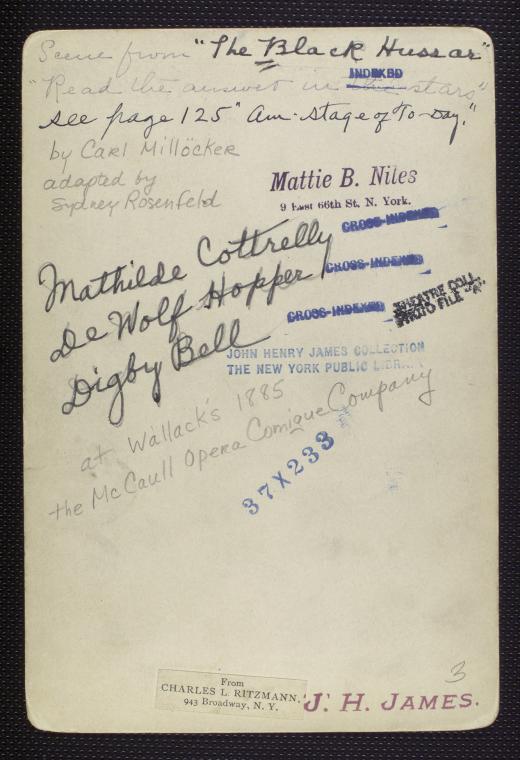 Scene from "The Black Hussar"
INDEXED
"Read the answer in the stars"
see page 125 "Am. Stage of To-Day."
by Carl Millöcker
adapted by
Sydney Rosenfeld
Mattie B. Niles
9 East 66th St. N. York.
CROSS-INDEXED
Mathilde Cottrelly
CROSS-INDEXED
De Wolf Hopper
CROSS-INDEXED
THEATRE COLL.
PHOTO FILE "A"
Digby Bell
JOHN HENRY JAMES COLLECTION
THE NEW YORK PUBLIC LIBR
at Wallack's 1885
the McCaull Opera Comique Company
37X233
3
From
CHARLES L. RITZMANN,
943 Broadway, N. Y.
J. H. JAMES.